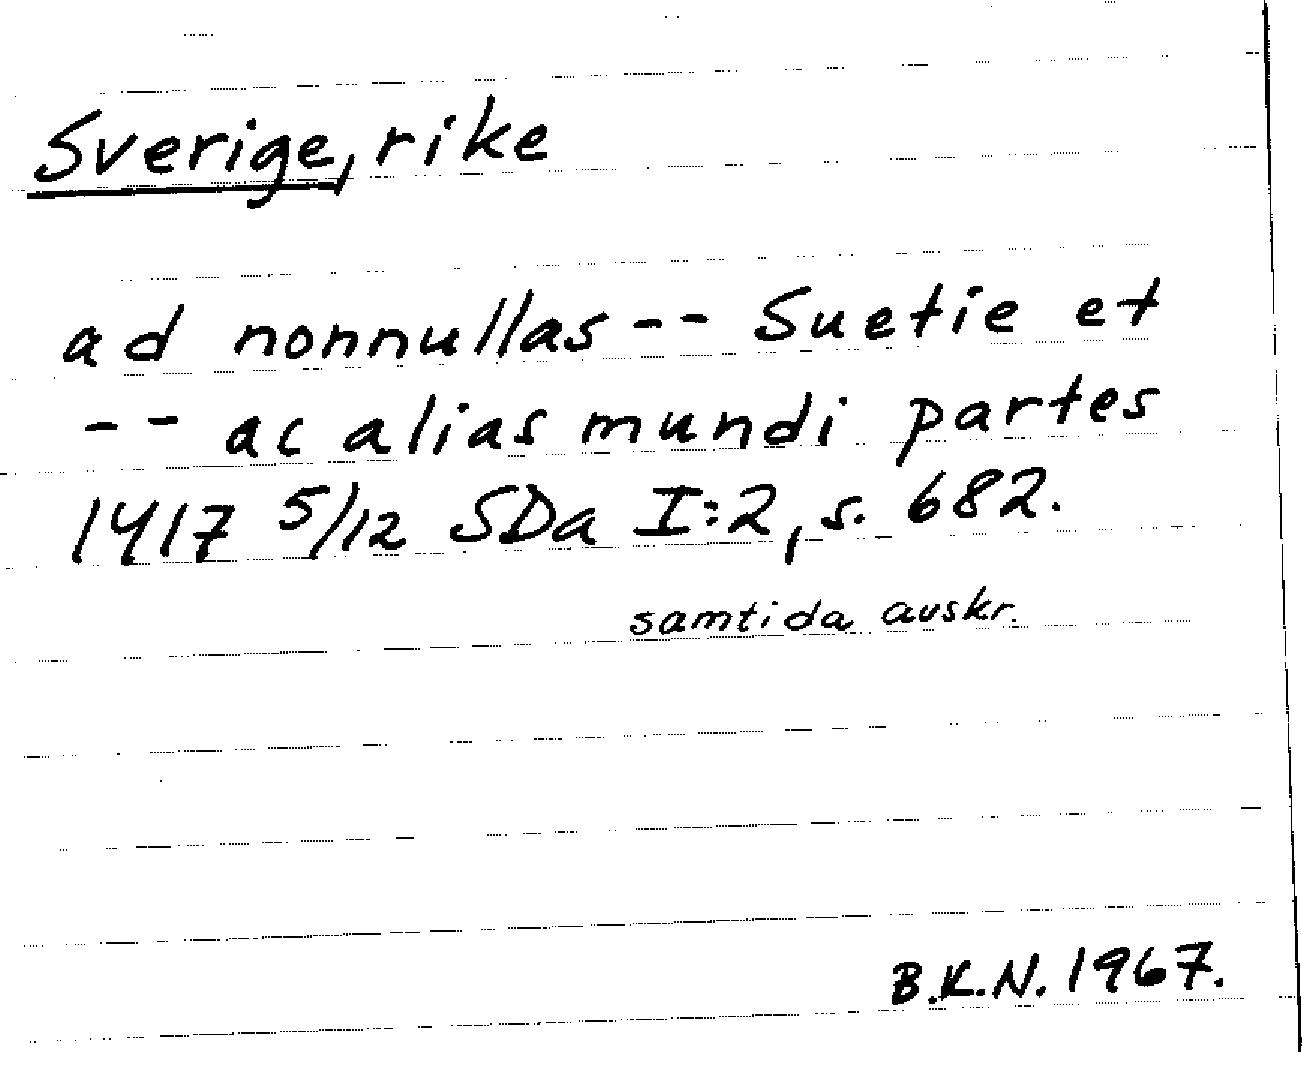 Sverige, rike
ad nonnullas -- Suetie et
-- ac alias mundi partes
1417 5/12 SDa I:2, s. 682.
samtida avskr.
B.K.N. 1967.